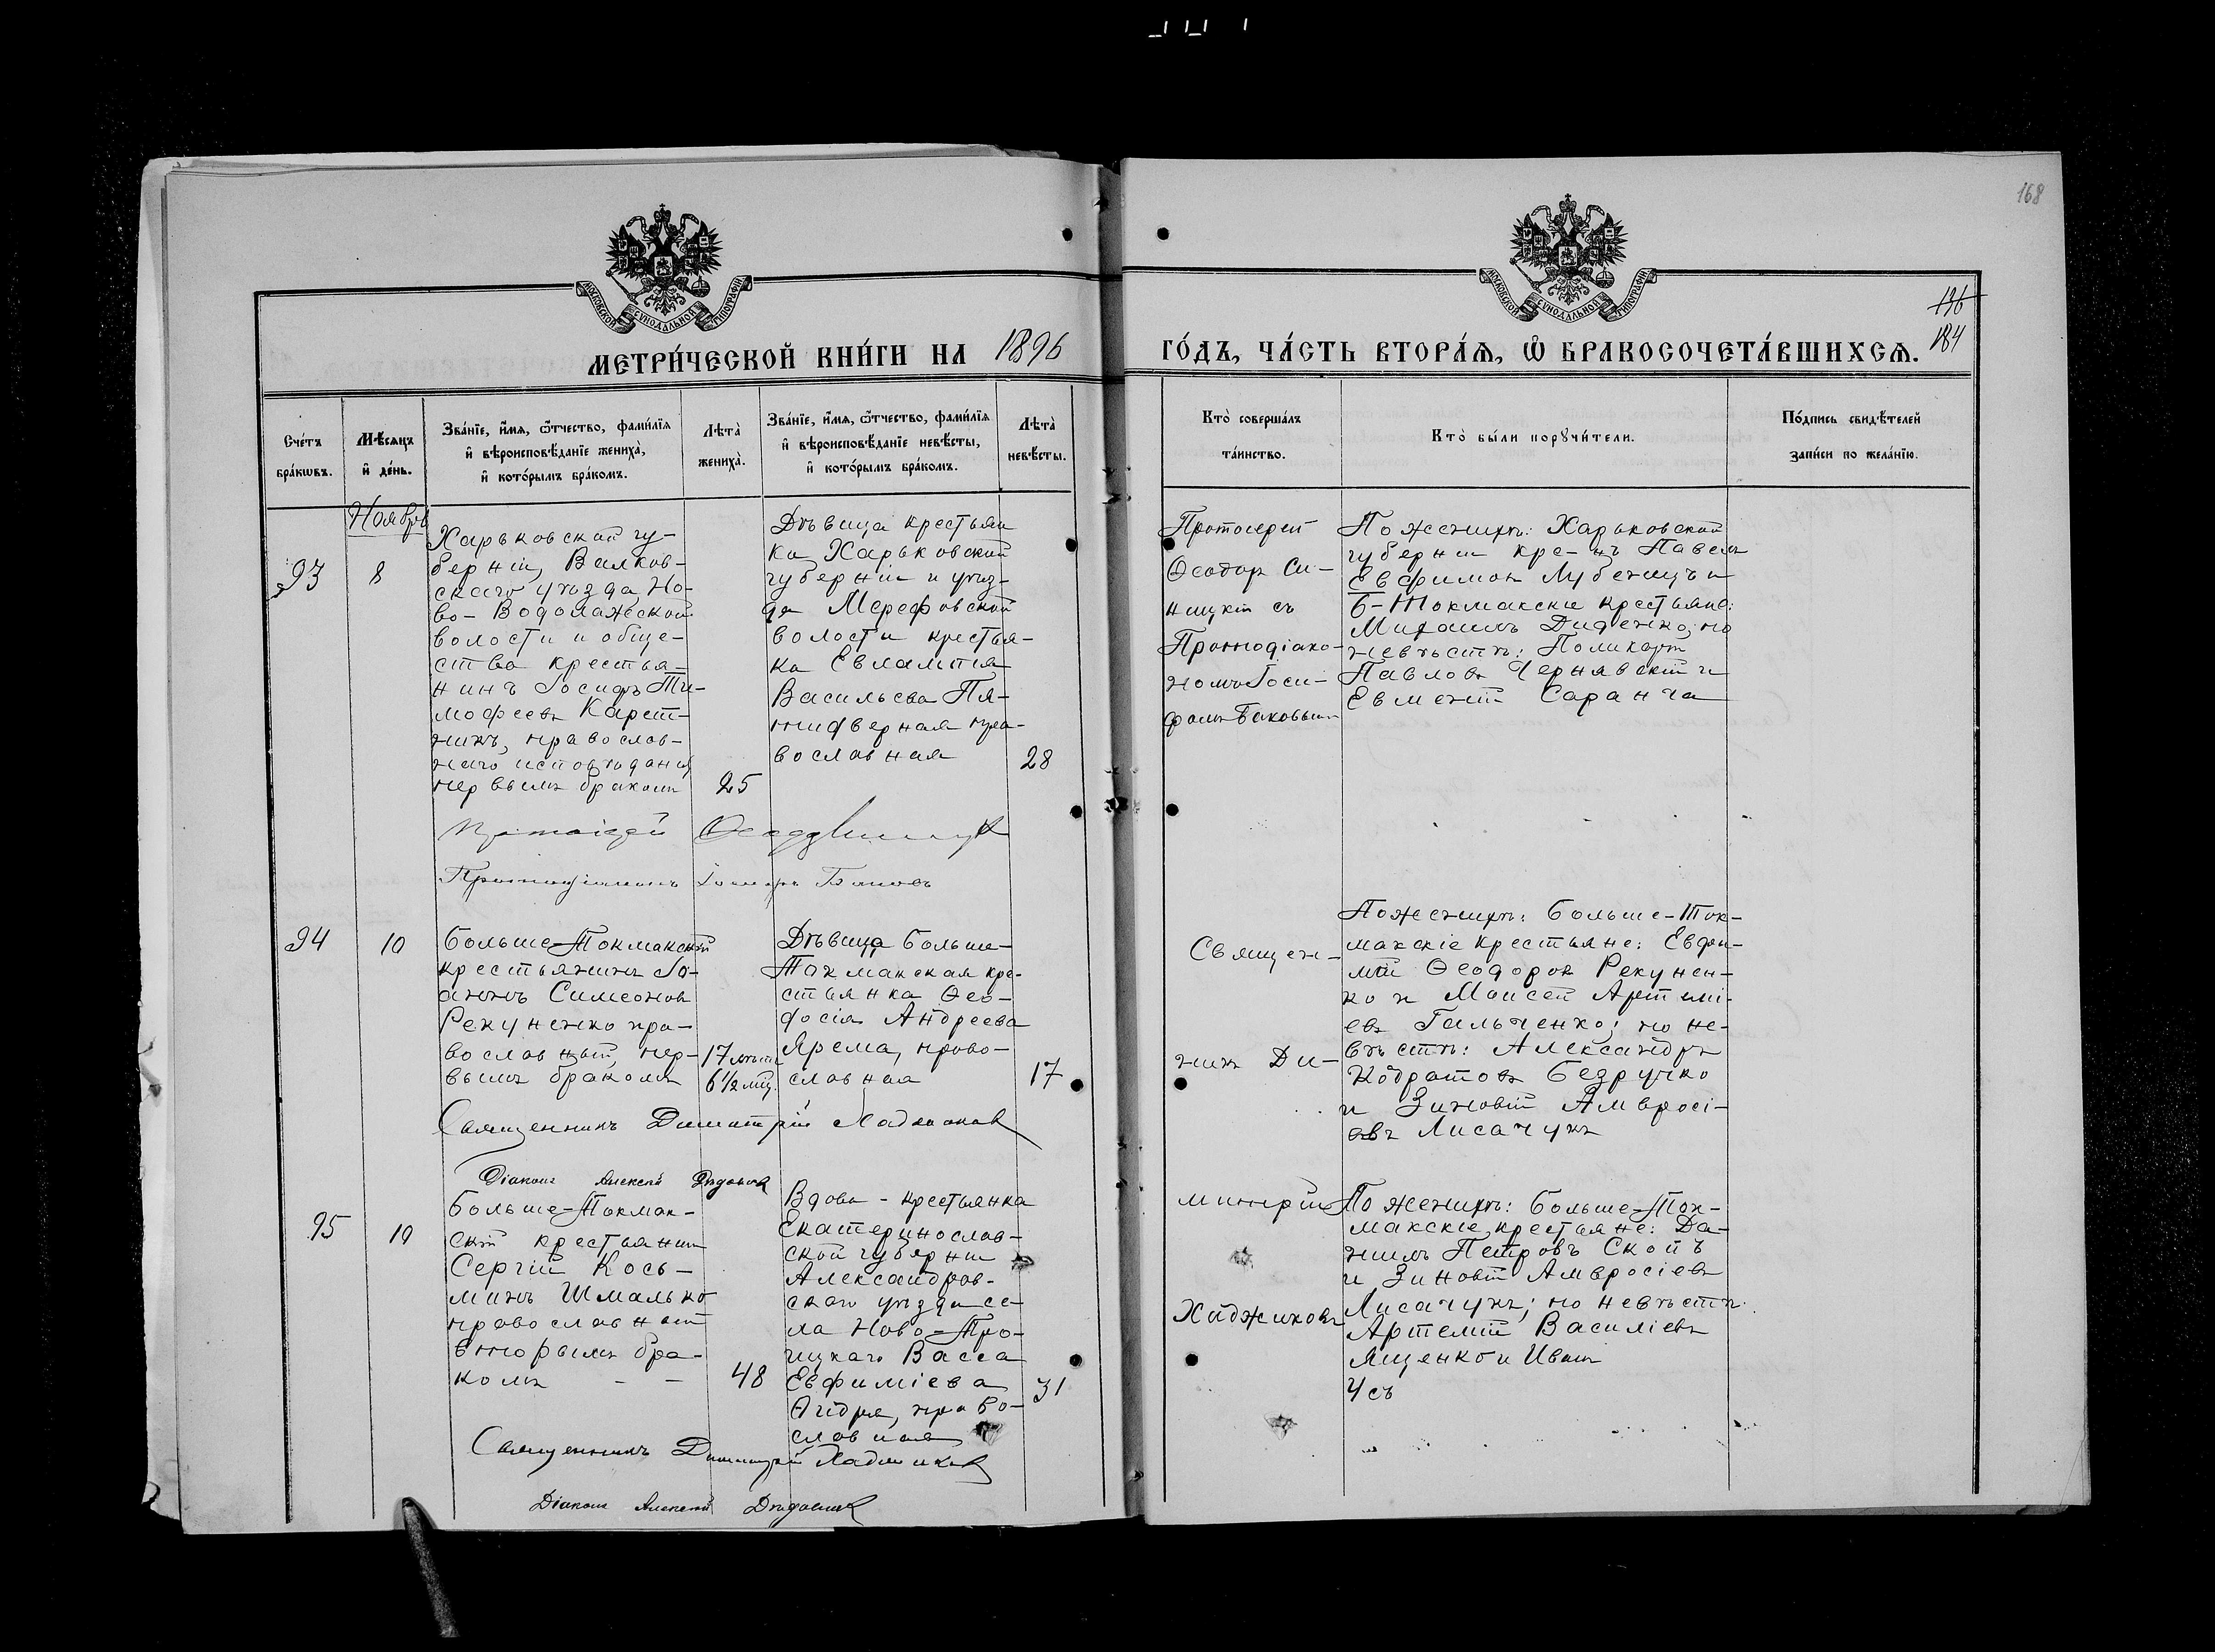 168
МОСКОВСКОЙ СѴНОДАЛЬНОЙ ТИПОГРАФІИ
МОСКОВСКОЙ СѴНОДАЛЬНОЙ ТИПОГРАФІИ
196
184
МЕТРИ́ЧЕСКОЙ КНИ́ГИ НА 1896
ГО́ДЪ, ЧА́СТЬ ВТОРА́Ѧ, Ѡ҆ БРАКОСОЧЕТА́ВШИХСѦ.
Сче́тъ
бра́кѡвъ.
Мѣ́сѧцъ
и҆ де́нь.
Зва́нїе, и҆́мѧ, ѻ҆́тчество, фами́лїѧ
и҆ вѣроисповѣ́данїе жениха̀,
и҆ кото́рымъ бра́комъ.
Лѣта̀
жениха̀.
Зва́нїе, и҆́мѧ, ѻ҆́тчество, фами́лїѧ
и҆ вѣроисповѣ́данїе невѣ́сты,
и҆ кото́рымъ бра́комъ.
Лѣта̀
невѣ́сты.
Кто̀ соверша́лъ
та́инство.
Кто̀ бы́ли порꙋчи́тели.
По́дпись свидѣ́телей
за́писи по жела́нїю.
Ноябрь
93
8
Харьковской гу-
берніи, Валков-
скаго уѣзда, Но-
во-Водолажской
волости и обще-
ства крестья-
нинъ Іосифъ Ти-
мофеевъ Карет-
никъ, православ-
наго исповѣданія
первымъ бракомъ
25
Дѣвица крестьян
ка Харьковской
губерніи и уѣз-
да Мерефовской
волости крестья-
ка Евлампія
Васильева
пра-
вославная
28
Протоіерей
Ѳеодоръ Си-
ницкій съ
Протодіако-
номъ Іоси-
фомъ Баковымъ
По женихѣ: Харьковской
губерніи кре-нъ Павелъ
Евфимовъ Лубенецъ и
Б-Токмакскіе крестьяне:
Михаилъ Диденко; по
невѣстѣ: Поликарпъ
Павловъ Чернявскій и
Евменій Саранча
Протоіерей Ѳеодоръ Синицкій
Протодіаконъ Іосифъ Баковъ
94
10
Больше-Токмакскій
крестьянинъ Іо-
аннъ Симеоновъ
Рекуненко пра-
вославный, пер-
вымъ бракомъ
17 лѣтъ
6½ мѣц.
Дѣвица Больше-
Токмакская кре-
стьянка Ѳео-
досія Андреева
Ярема, право-
славная
17
Священ-
никъ Ди-
митрій
Хаджиковъ
По женихѣ: Больше-Ток-
макскіе крестьяне: Евфи-
мій Ѳеодоровъ Рекунен-
ко и Моисей Артемі-
евъ Гальченко; по не-
вѣстѣ: Александръ
Кодратовъ Безручко
и Зиновій Амвросі-
евъ Лисачукъ
Священникъ Димитрій Хаджиковъ
Діаконъ Алексей
95
10
Больше-Токмак-
скій крестьянинъ
Сергій Кось-
минъ Шмалько
православный
вторымъ бра-
комъ - -
48
Вдова - крестьянка
Екатеринослав-
ской губерніи
Александров-
скаго уѣзда се-
ла Ново-Тро-
ицкаго Васса
Евфиміева
право-
славная
31
По женихѣ: Больше-Ток-
макскіе крестьяне: Да-
ніилъ Петровъ Скопъ
и Зиновій Амвросіевъ
Лисачукъ; по невѣстѣ:
Артемій Василіевъ
Ященко и Иванъ
Усъ
Священникъ Димитрій Хаджиковъ
Діаконъ Алексей